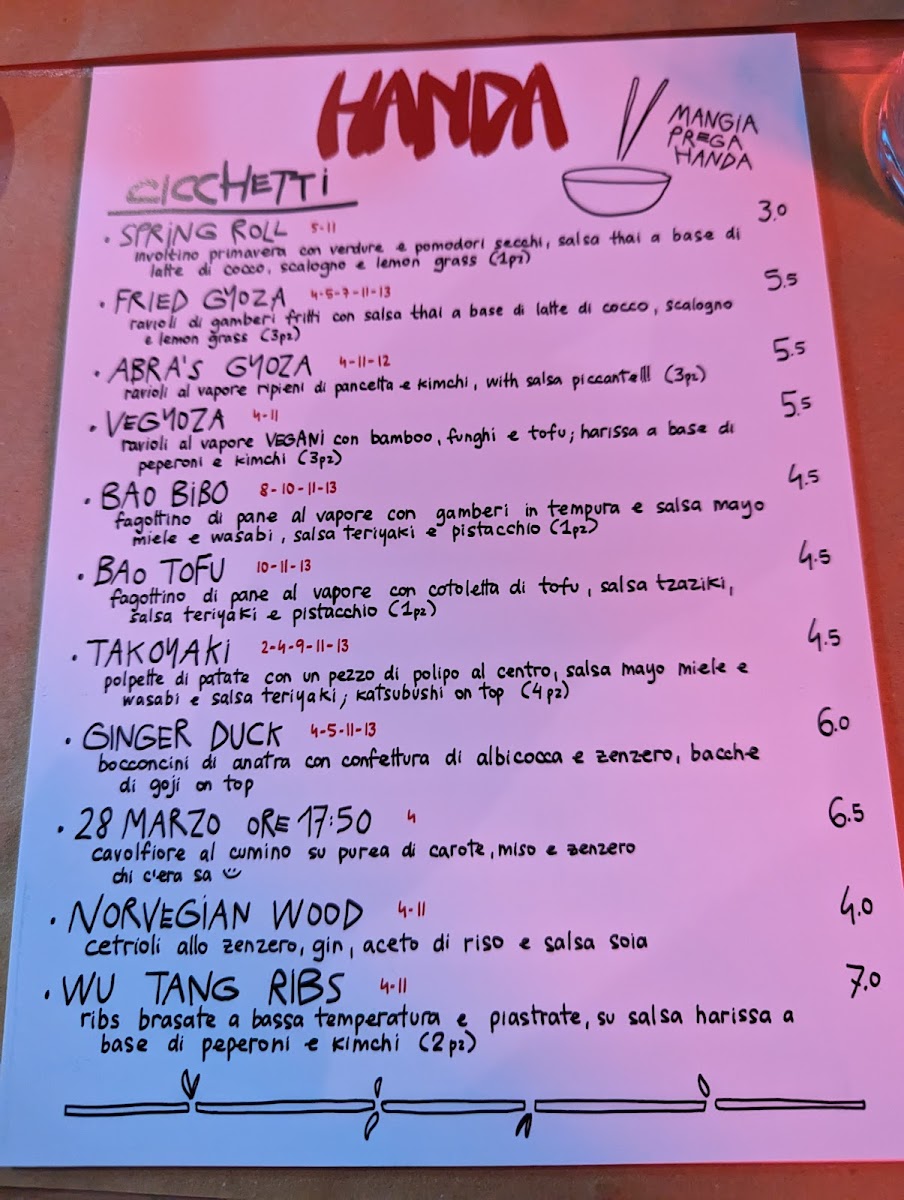 HANDA
MANGIA
PREGA
HANDA
CICCHETTI
• SPRING ROLL 5-11 3.0
involtino primavera con verdure e pomodori secchi, salsa thai a base di
latte di cocco, scalogno e lemon grass (1pz)
• FRIED GYOZA 4-5-7-11-13 5.5
ravioli di gamberi fritti con salsa thai a base di latte di cocco, scalogno
e lemon grass (3pz)
• ABRA'S GYOZA 4-11-12 5.5
ravioli al vapore ripieni di pancetta e kimchi, with salsa piccante!!! (3pz)
• VEGYOZA 4-11 5.5
ravioli al vapore VEGANI con bamboo, funghi e tofu; harissa a base di
peperoni e kimchi (3pz)
• BAO BIBO 8-10-11-13 4.5
fagottino di pane al vapore con gamberi in tempura e salsa mayo
miele e wasabi, salsa teriyaki e pistacchio (1pz)
• BAO TOFU 10-11-13 4.5
fagottino di pane al vapore con cotoletta di tofu, salsa tzaziki,
salsa teriyaki e pistacchio (1pz)
• TAKOYAKI 2-4-9-11-13 4.5
polpette di patate con un pezzo di polipo al centro, salsa mayo miele e
wasabi e salsa teriyaki; katsubushi on top (4pz)
• GINGER DUCK 4-5-11-13 6.0
bocconcini di anatra con confettura di albicocca e zenzero, bacche
di goji on top
• 28 MARZO ORE 17:50 4 6.5
cavolfiore al cumino su purea di carote, miso e zenzero
chi c'era sa
• NORVEGIAN WOOD 4-11 4.0
cetrioli allo zenzero, gin, aceto di riso e salsa soia
• WU TANG RIBS 4-11 7.0
ribs brasate a bassa temperatura e piastrate, su salsa harissa a
base di peperoni e kimchi (2pz)